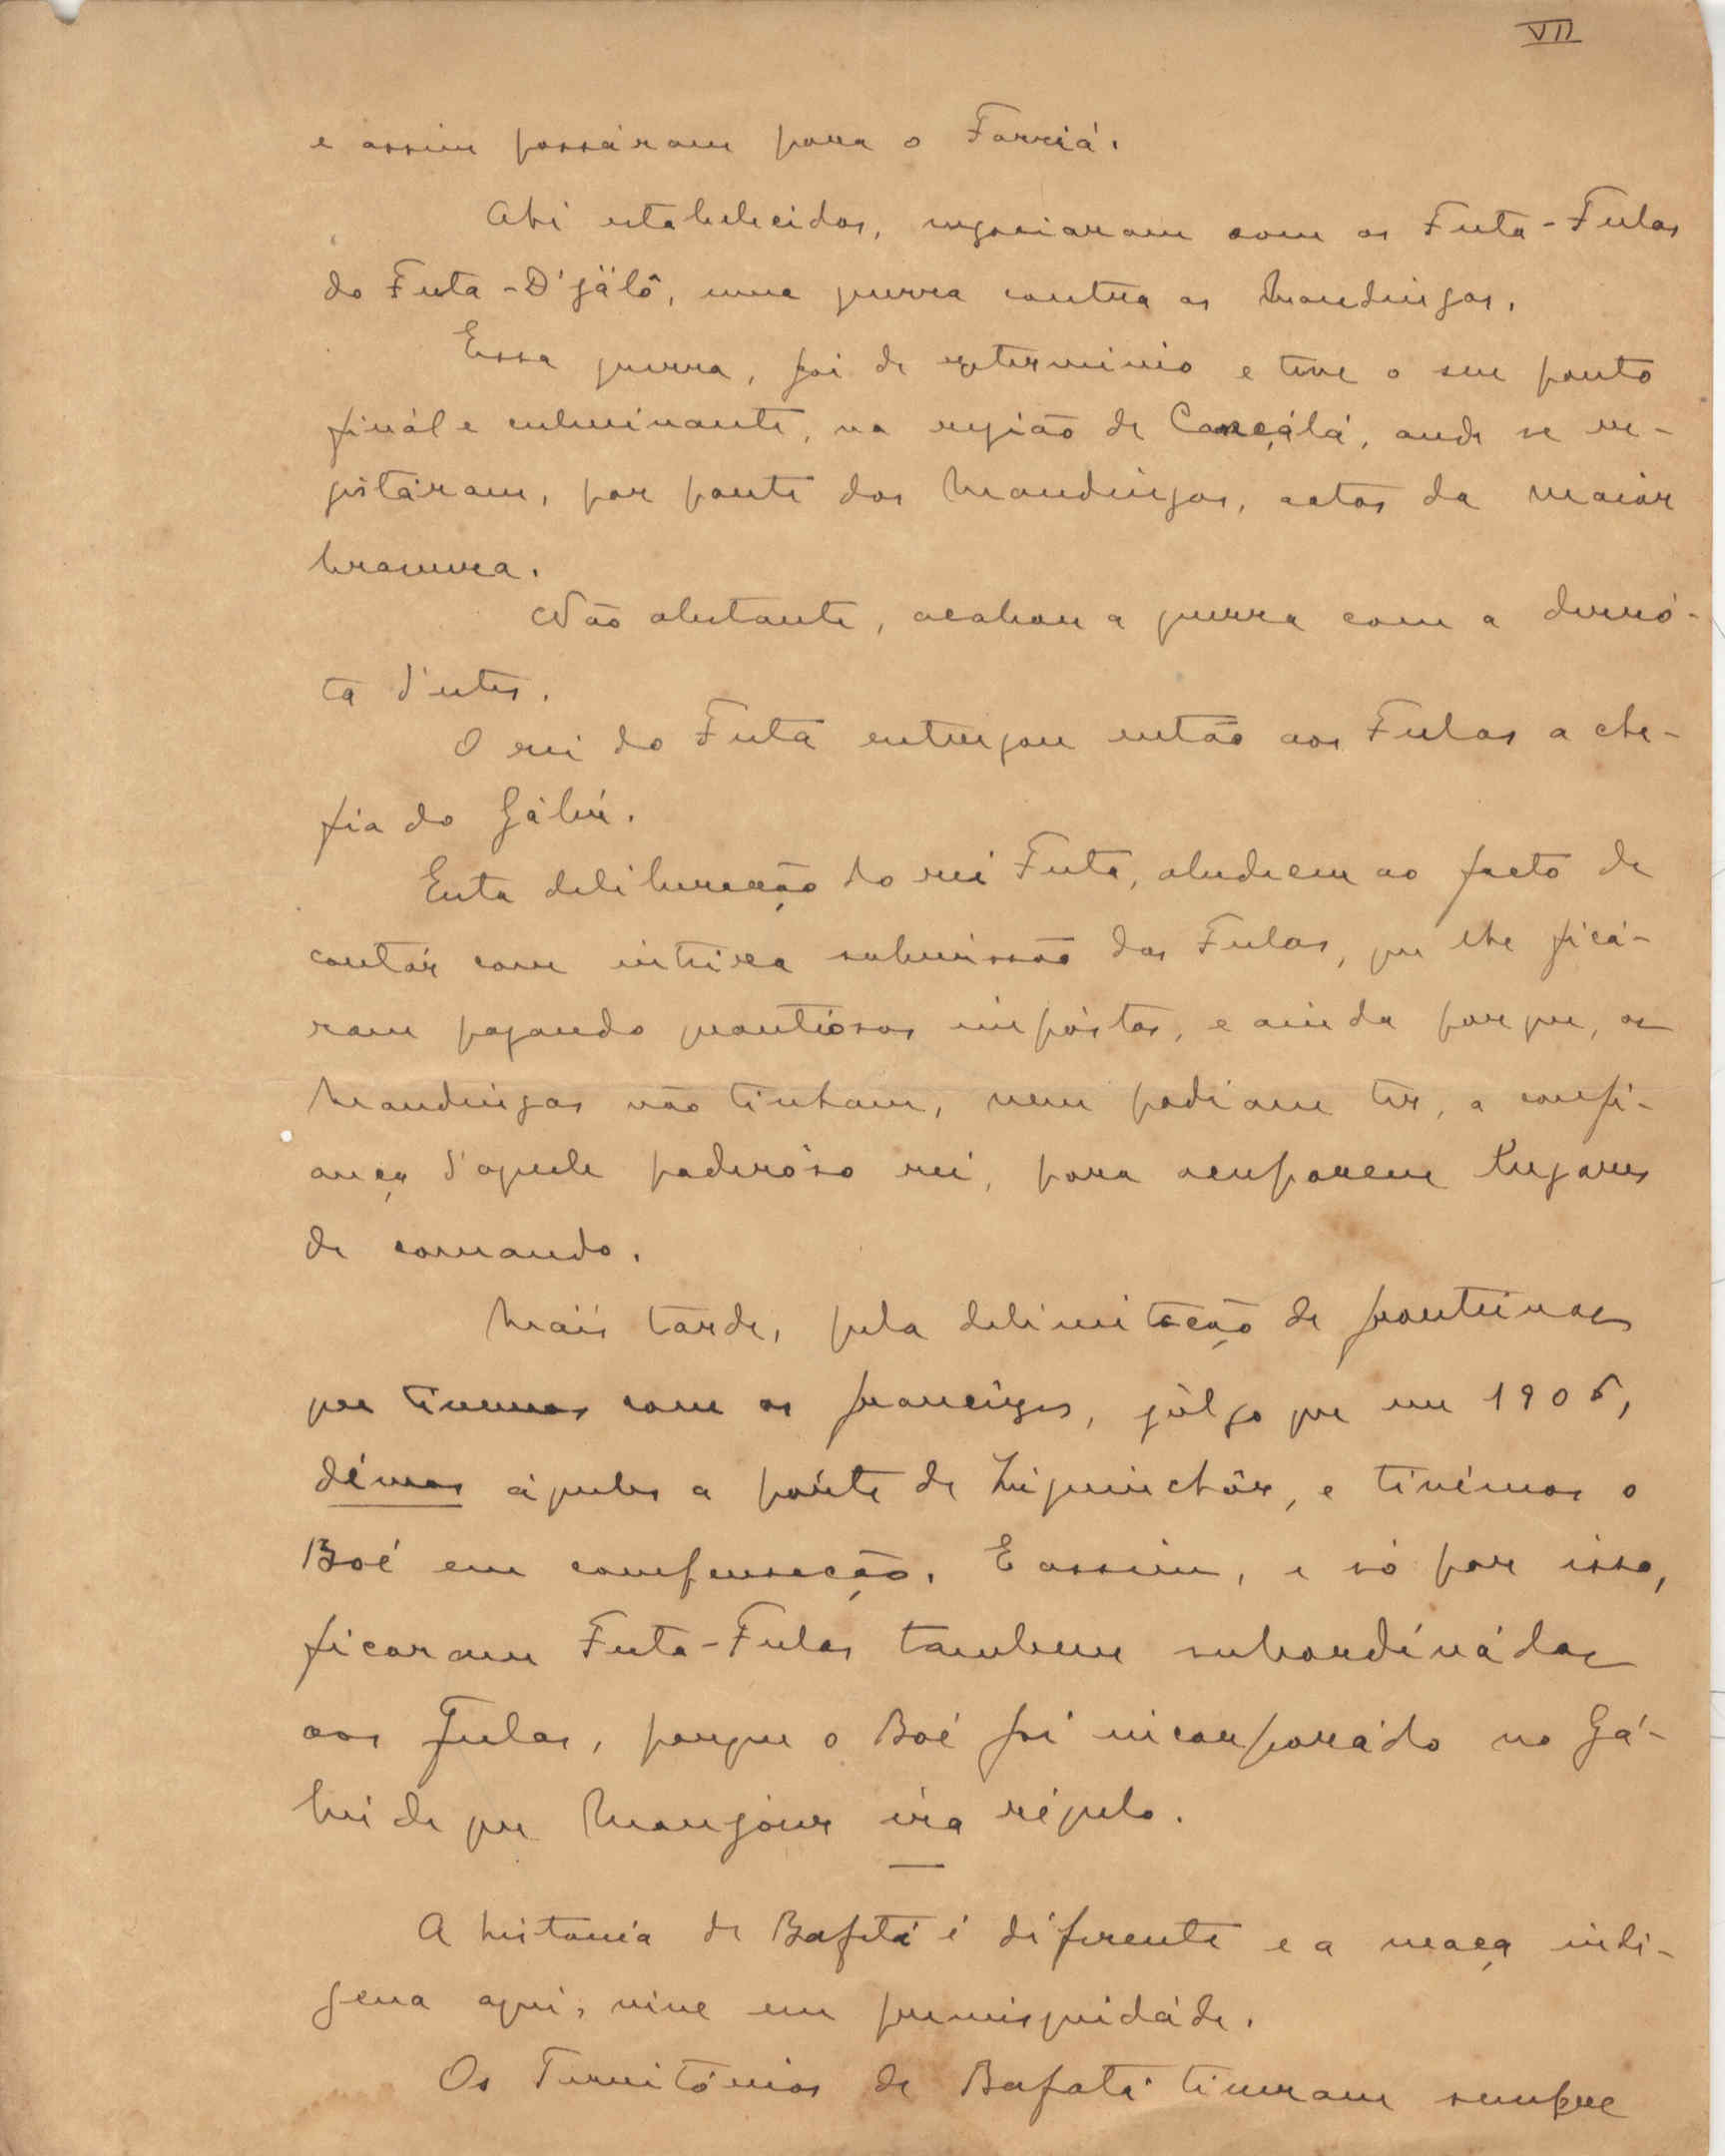 VII
e assim passáram para o Forriá.
Ahi estabelecidos, negociaram com os Futa-Fulas
do Futa-D'jálô, uma guerra contra os Mandingas.
Essa guerra, foi de exterminio e teve o seu ponto
finál e culminante, na região de Cançálá, onde se re-
gistáram, por parte dos Mandingas, actos da maiór
bravura.
Não obstante, acabou a guerra com a derró-
ta d'estes.
O rei do Futa entregou então aos Fulas a che-
fia do Gábú.
Esta deliberação do rei Futa, aludiem ao facto de
contár com inteira submissão dos Fulas, que lhe ficá-
ram pagando quantiosos impóstos, e ainda porque, os
Mandingas não tinham, nem podiam ter, a confi-
ança d'aquele poderôso rei, para ocuparem lugares
de comando.
Mais tarde, pela delimitação de fronteiras
que tivemos com os francêzes, júlgo que em 1905,
démos áqueles a párte de Ziguinchôr, e tivémos o
Boé em compensação. E assim, e só por isso,
ficaram Futa-Fulas tambem subordinádos
aos Fulas, porque o Boé foi incorporádo no Gá-
bú de que Monjour éra régulo.
—
A historia de Bafatá é diferente e a raça indi-
gena aqui, vive em promisquidáde.
Os Territórios de Bafatá tiveram sempre